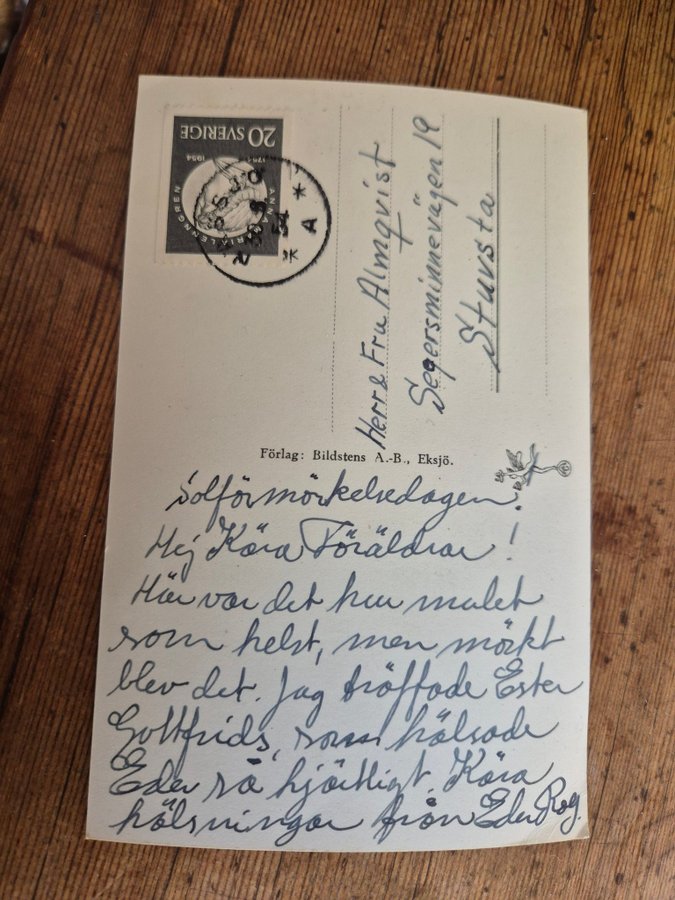 20 SVERIGE
1754
1954
ANNA MARIA LENNGREN
30 8
54
* A *
Herr & Fru Almqvist
Segersminnevägen 19
Stuvsta
Förlag: Bildstens A.-B., Eksjö.
Solförmörkelsedagen.
Hej Kära Föräldrar!
Här var det hur mulet
som helst, men mörkt
blev det. Jag träffade Ester
Gottfrids, som hälsade
Eder så hjärtligt. Kära
hälsningar från Eder